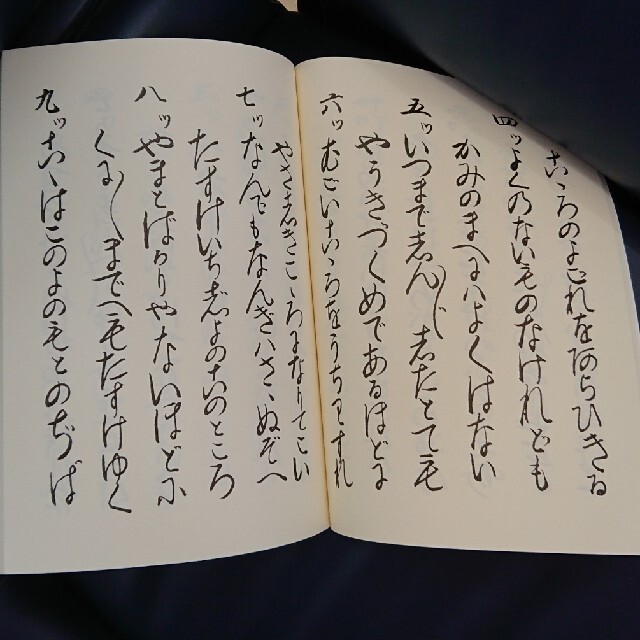 こゝろのよごれをあらひきる
四ツよくのないものなけれども
かみのまへにハよくはない
五ツいつまでしん〲したとても
やうきづくめであるほどに
六ツむごいこゝろをうちわすれ
やさしきこゝろになりてこい
七ツなんでもなんぎハさゝぬぞへ
たすけいちじよのこのところ
八ツやまとばかりやないほどに
くに〲までへもたすけゆく
九ツこゝはこのよのもとのぢば